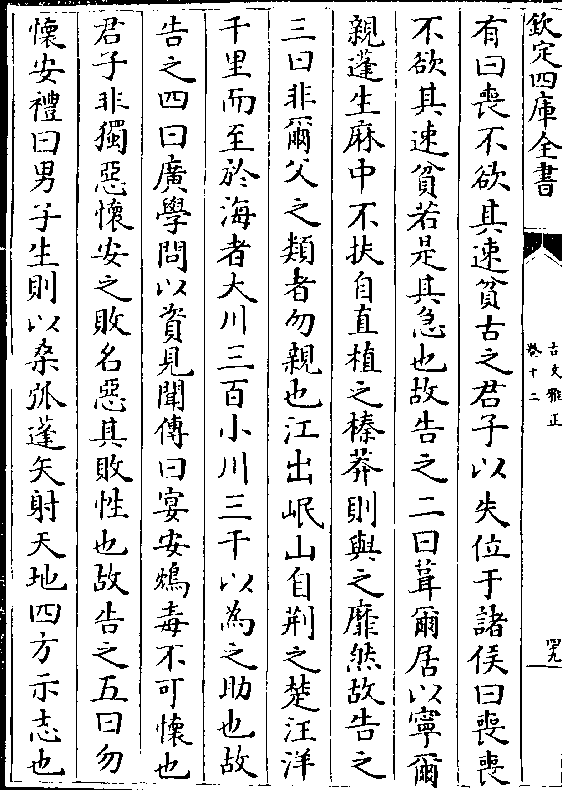 欽定四庫全書
古文雅正
卷十二
四九
有曰喪不欲其速貧古之君子以失位于諸侯曰喪喪
不欲其速貧若是其急也故告之二曰葺爾居以寧爾
親蓬生麻中不扶自直植之榛莽則與之靡然故告之
三曰非爾父之類者勿親也江出岷山自荆之楚汪洋
千里而至於海者大川三百小川三千以為之助也故
告之四曰廣學問以資見聞傳曰宴安鴆毒不可懷也
君子非獨惡懷安之敗名惡其敗性也故告之五曰勿
懷安禮曰男子生則以桑弧蓬矢射天地四方示志也